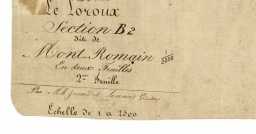 Le Loroux
Section B2
dite de
Mont Romain
En deux Feuilles
2me Feuille
Par
Echelle de 1 a 2500